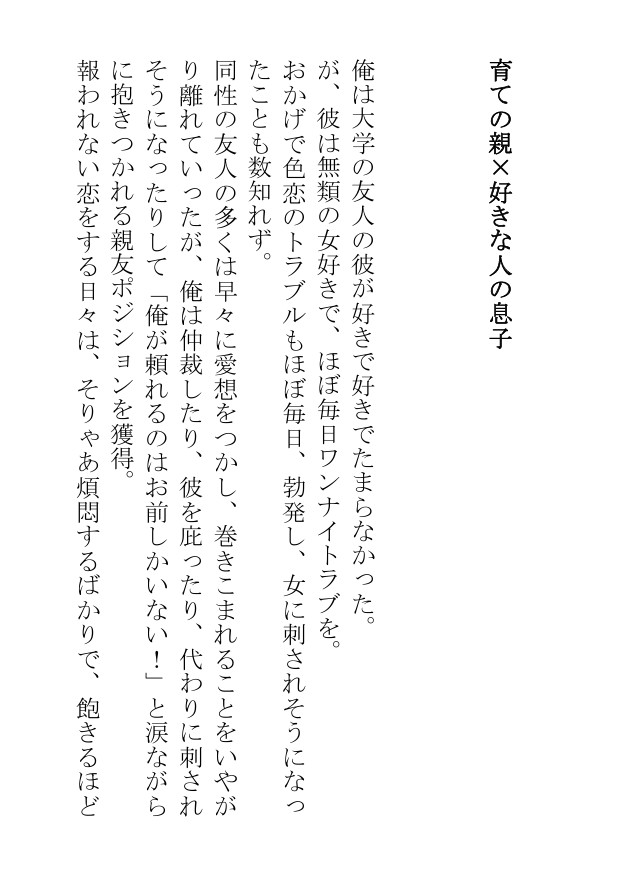 育ての親×好きな人の息子
俺は大学の友人の彼が好きで好きでたまらなかった。
が、彼は無類の女好きで、ほぼ毎日ワンナイトラブを。
おかげで色恋のトラブルもほぼ毎日、勃発し、女に刺されそうになっ
たことも数知れず。
同性の友人の多くは早々に愛想をつかし、巻きこまれることをいやが
り離れていったが、俺は仲裁したり、彼を庇ったり、代わりに刺され
そうになったりして「俺が頼れるのはお前しかいない！」と涙ながら
に抱きつかれる親友ポジションを獲得。
報われない恋をする日々は、そりゃあ煩悶するばかりで、飽きるほど